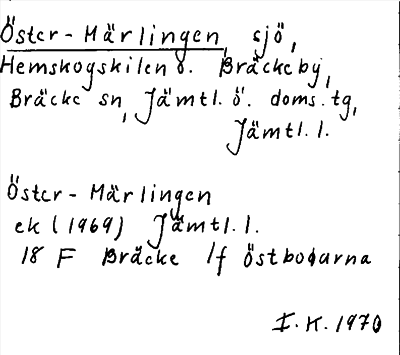 Öster-Märlingen, sjö,
Hemskogskilen ö. Bräcke by,
Bräcke sn, Jämtl. ö. doms. tg,
Jämtl. l.
Öster-Märlingen
ek (1969) Jämtl. l.
18 F Bräcke 1f Östbodarna
I. K. 1970